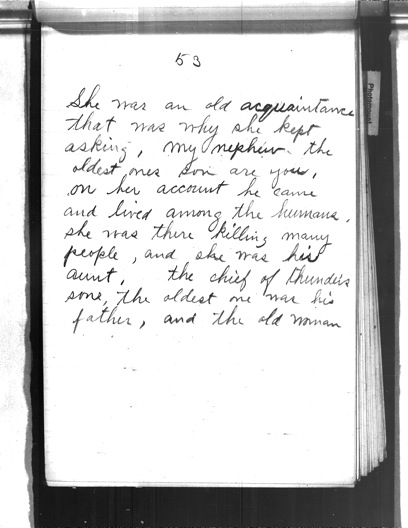 53
She was an old acquaintance
that was why she kept
asking, my nephew the
oldest ones son are you,
on her account he came
and lived among the humans,
she was there killing many
people, and she was his
aunt, the chief of thunders
sons, the oldest one was his
father, and the old woman